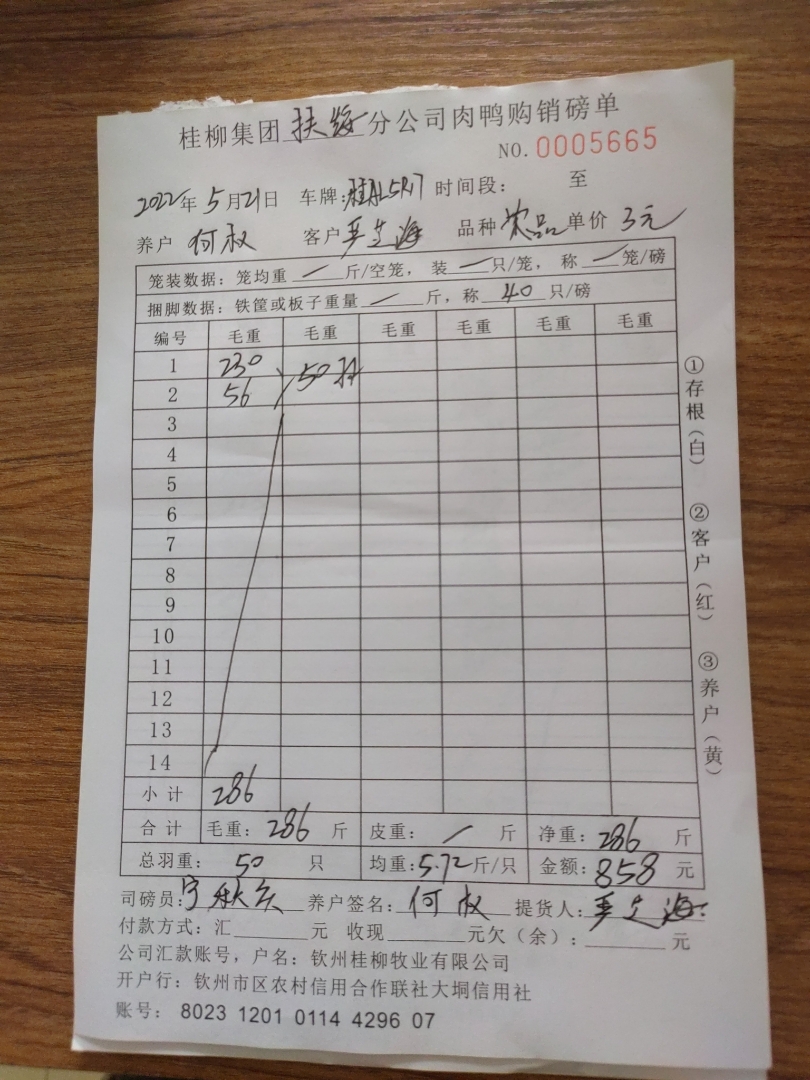 桂柳集团扶绥分公司肉鸭购销磅单
NO.0005665
2022年5月21日 车牌: 时间段: 至
养户 何叔 客户 海 品种 次品 单价 3元
笼装数据: 笼均重 / 斤/空笼, 装 / 只/笼, 称 / 笼/磅
捆脚数据: 铁筐或板子重量 / 斤, 称 40 只/磅
编号 毛重 毛重 毛重 毛重 毛重 毛重
1 230
2 56 50只
3
4
5
6
7
8
9
10
11
12
13
14
小计 286
合计 毛重: 286 斤 皮重: / 斤 净重: 286 斤
总羽重: 50 只 均重: 5.72斤/只 金额: 858 元
司磅员: 秋 养户签名: 何叔 提货人: 海
付款方式: 汇 元 收现 元欠(余): 元
公司汇款账号, 户名: 钦州桂柳牧业有限公司
开户行: 钦州市区农村信用合作联社大垌信用社
账号: 8023 1201 0114 4296 07
①存根(白) ②客户(红) ③养户(黄)